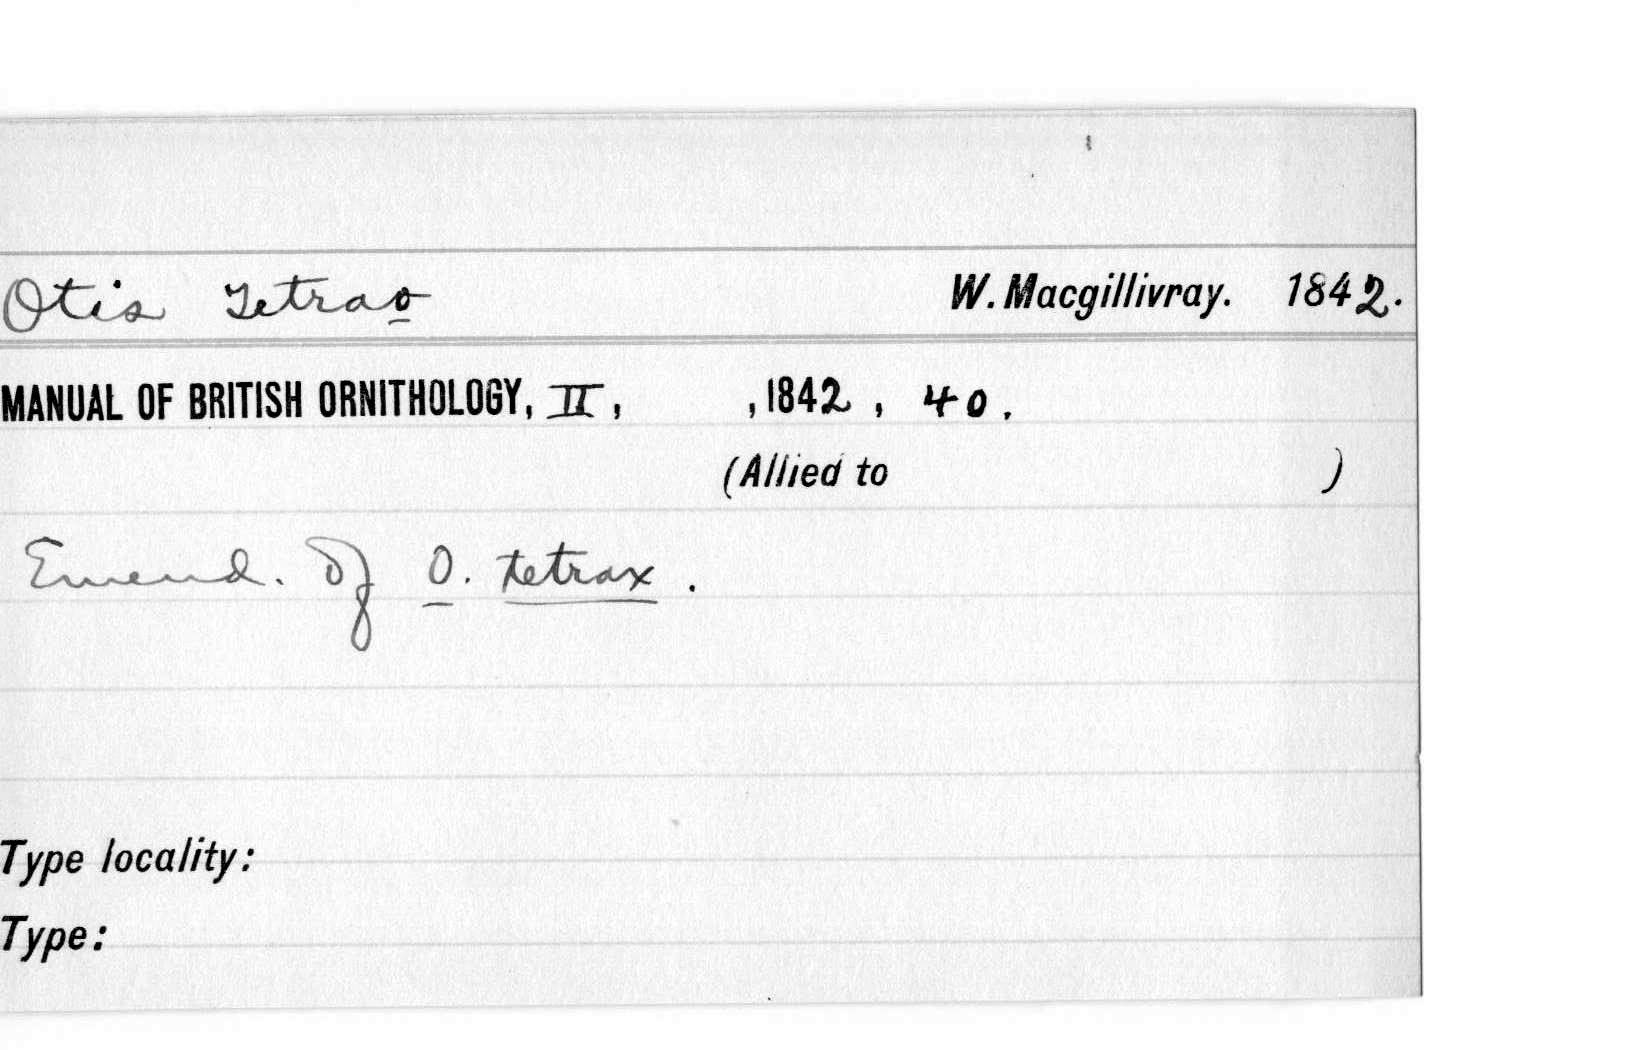 Otis Tetrao W. Macgillivray. 1842.
MANUAL OF BRITISH ORNITHOLOGY, II, , 1842, 40.
(Allied to )
Emend. of O. tetrax.
Type locality:
Type: